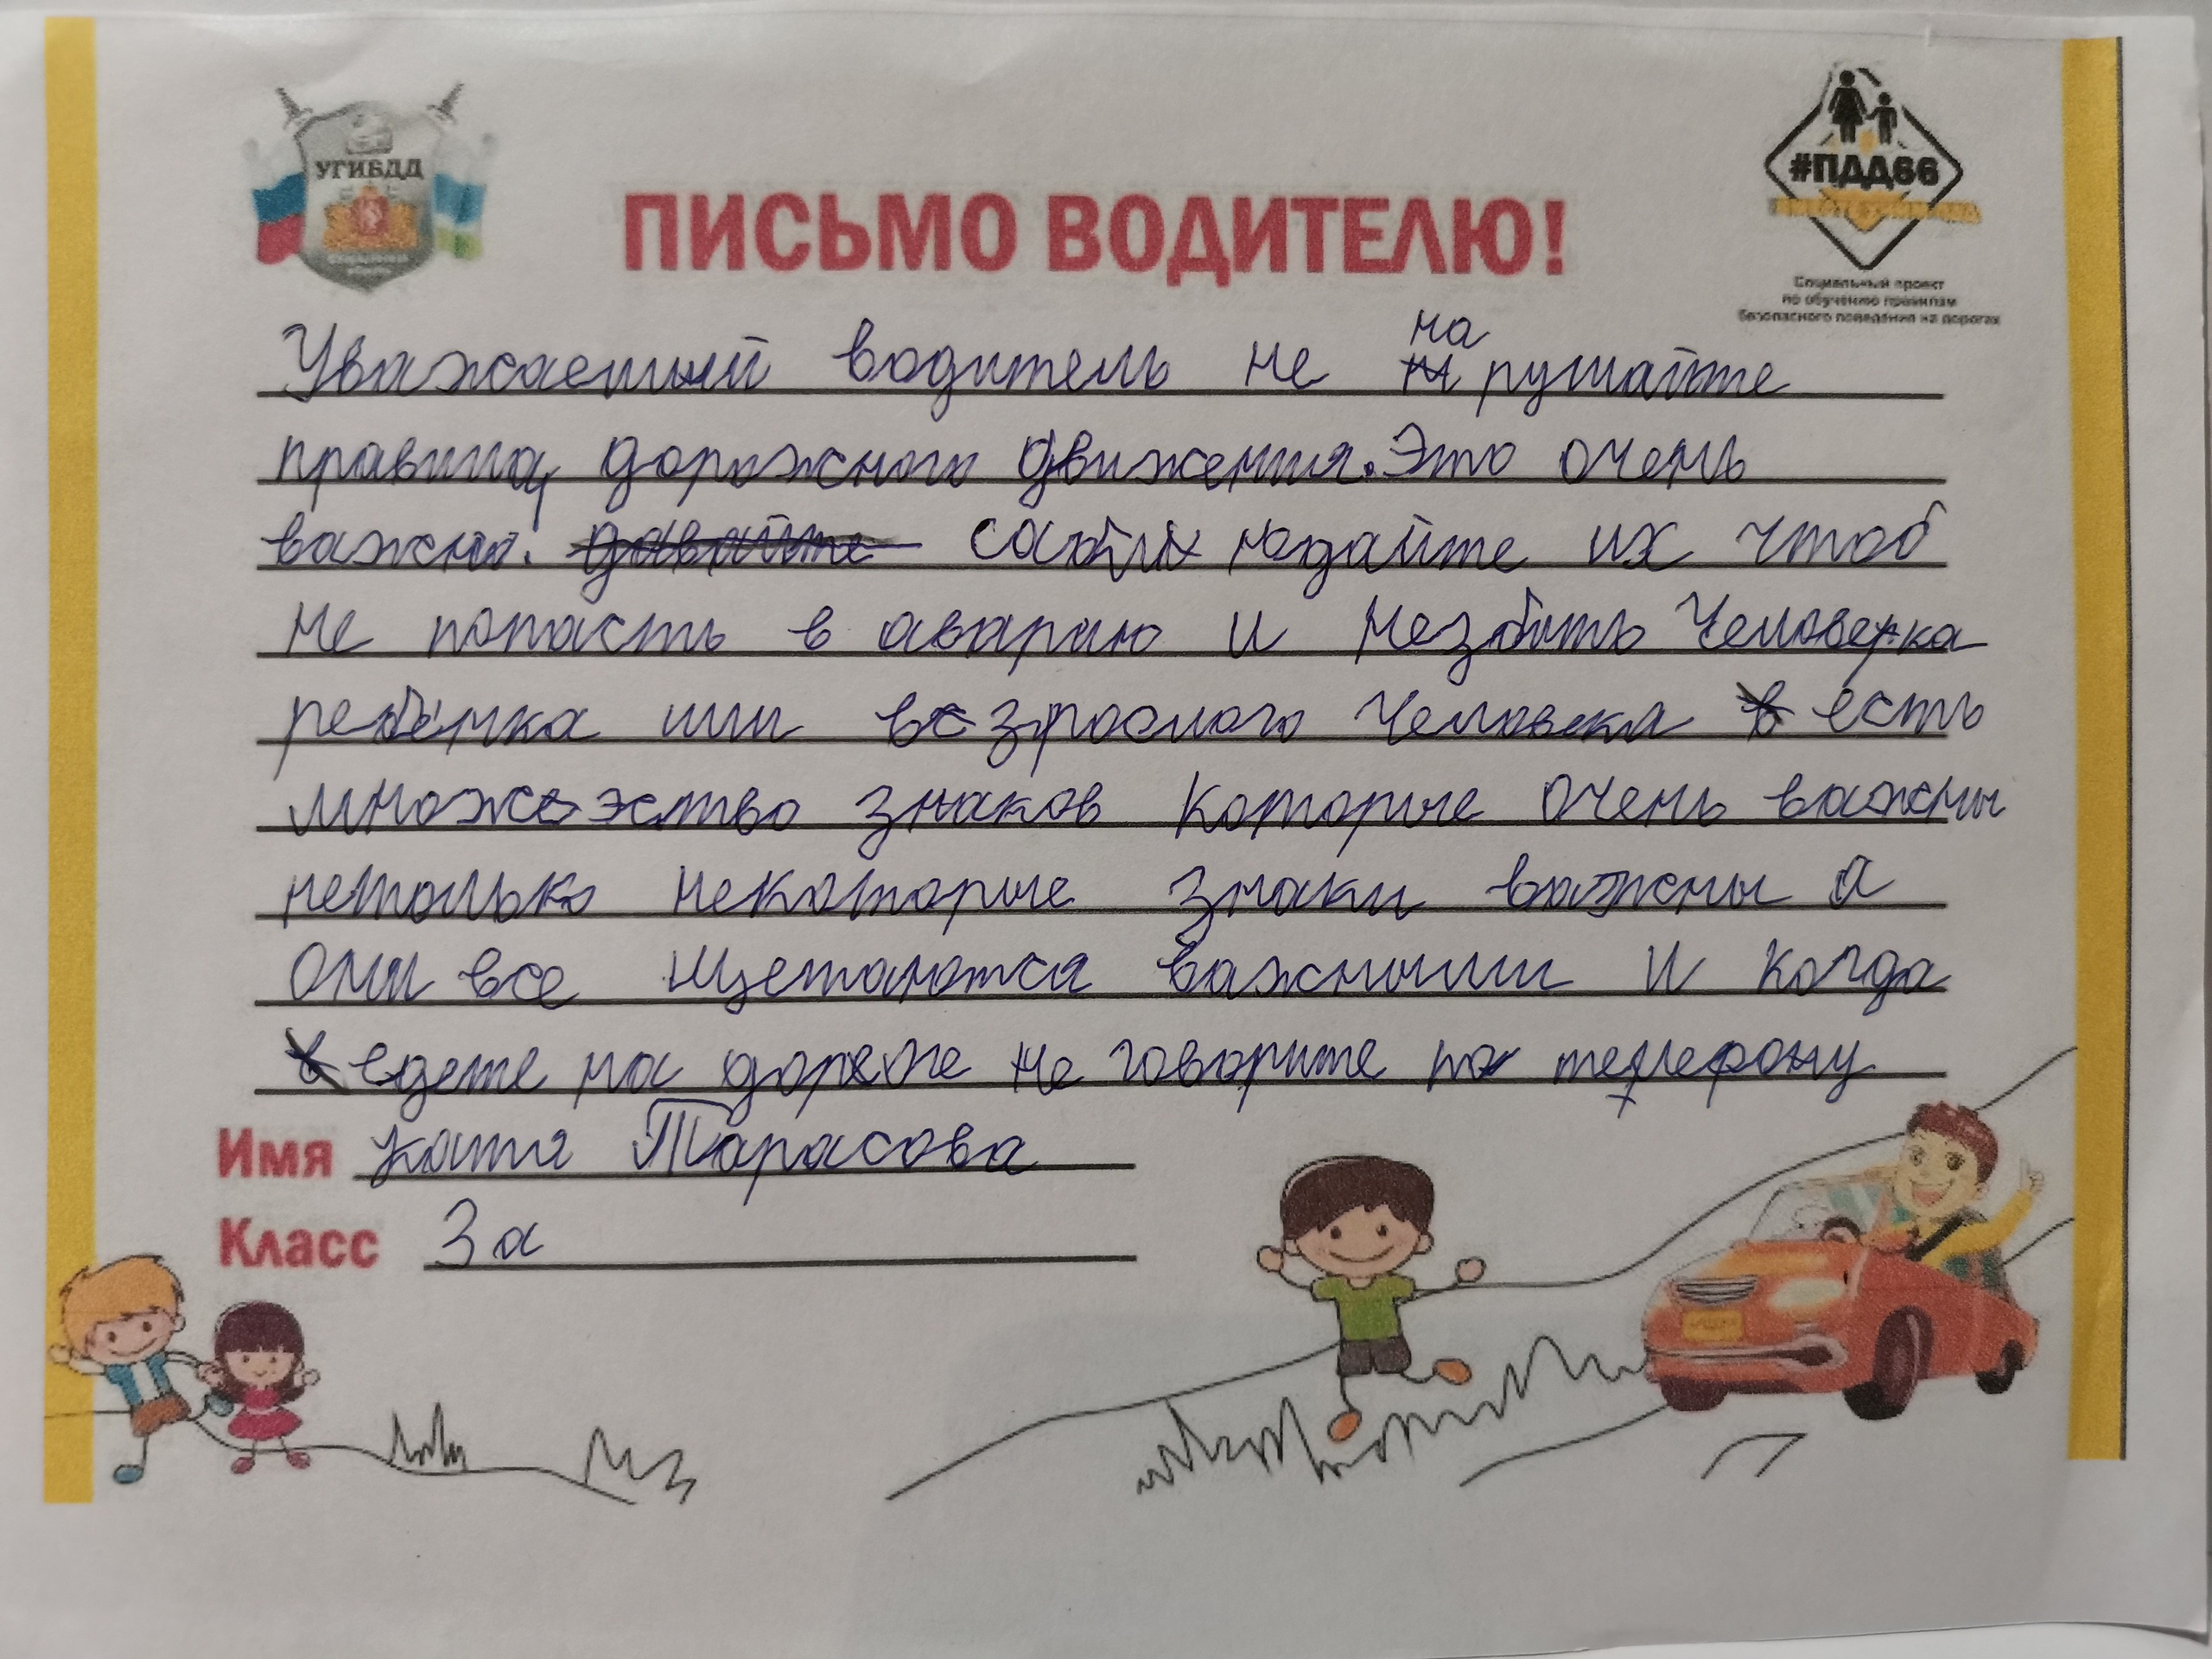 УГИБДД
#ПДД66
ПИСЬМО ВОДИТЕЛЮ!
Социальный проект
по обучению правилам
безопасного поведения на дорогах
Уважаемый водитель не нарушайте
правила дорожного движения. Это очень
важно. давайте соблюдайте их чтоб
не попасть в аварию и незбить Человека
ребёнка или взрослого Человека есть
множество знаков Которые очень важны
нетолько некоторые знаки важны а
они все щетаются важными И когда
едете на дороге не говорите по телефону
Имя Катя Тарасова
Класс 3а